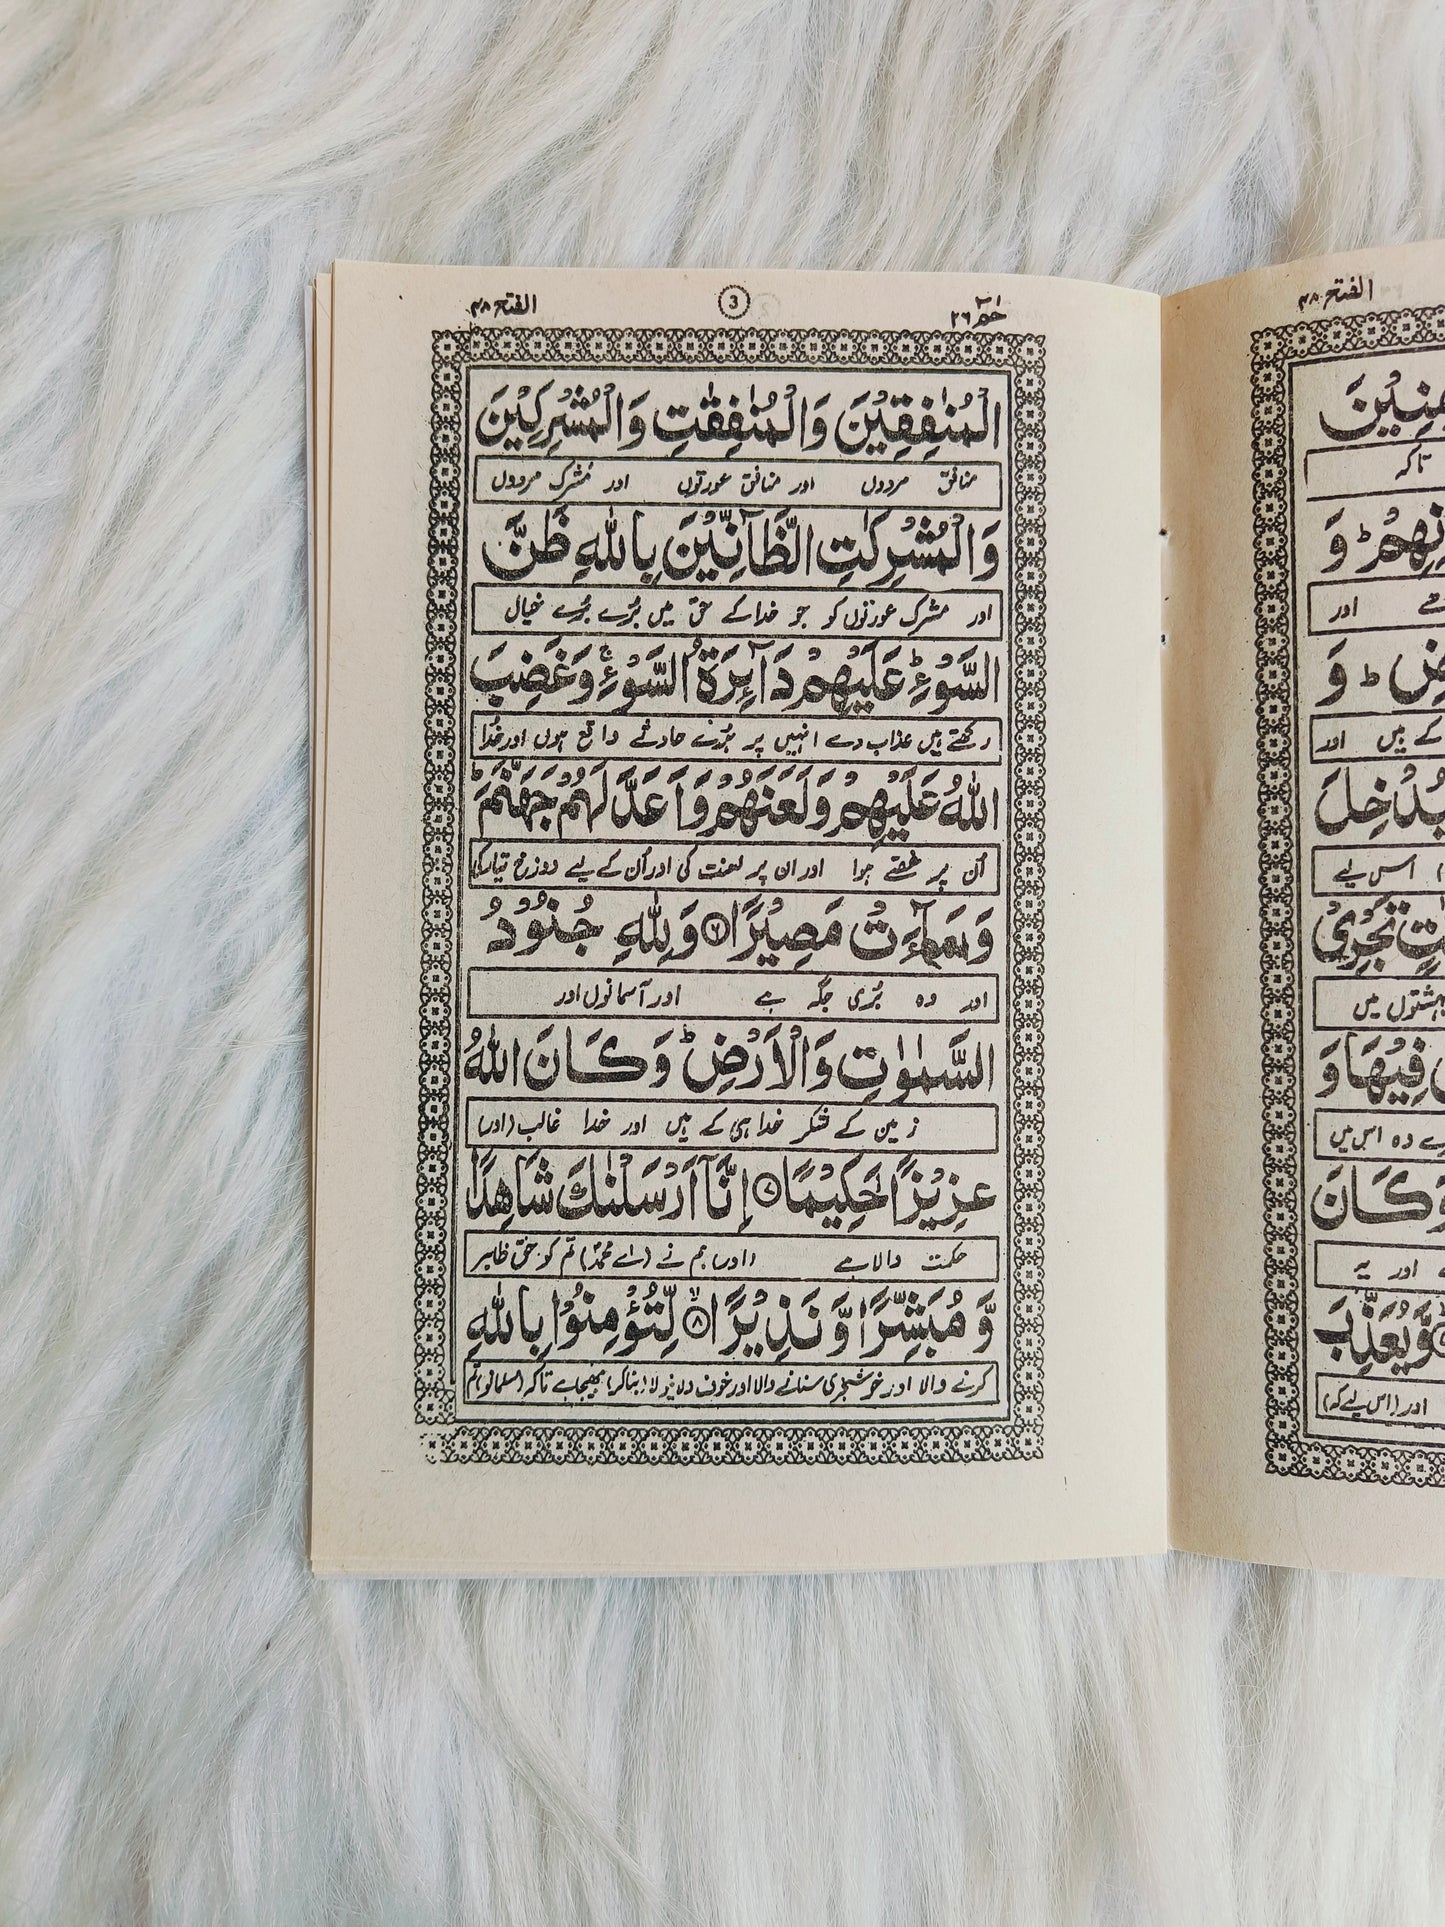 الفتح ۴۸
3
حٰم ۲۶
الْمُنٰفِقِيْنَ وَالْمُنٰفِقٰتِ وَالْمُشْرِكِيْنَ
منافق مردوں اور منافق عورتوں اور مُشرک مردوں
وَالْمُشْرِكٰتِ الظَّآنِّيْنَ بِاللّٰهِ ظَنَّ
اور مشرک عورتوں کو جو خدا کے حق میں بُرے بُرے خیال
السَّوْءِ ؕ عَلَيْهِمْ دَآئِرَةُ السَّوْءِ ۚ وَغَضِبَ
رکھتے ہیں عذاب دے انہیں پر بُرے حادثے واقع ہوں اور خُدا
اللّٰهُ عَلَيْهِمْ وَلَعَنَهُمْ وَاَعَدَّ لَهُمْ جَهَنَّمَ ؕ
اُن پر غصّے ہوا اور ان پر لعنت کی اور اُن کے لیے دوزخ تیار کی
وَسَآءَتْ مَصِيْرًا ۶ وَلِلّٰهِ جُنُوْدُ
اور وہ بُری جگہ ہے اور آسمانوں اور
السَّمٰوٰتِ وَالْاَرْضِ ؕ وَكَانَ اللّٰهُ
زمین کے لشکر خدا ہی کے ہیں اور خدا غالب (اور)
عَزِيْزًا حَكِيْمًا ۷ اِنَّآ اَرْسَلْنٰكَ شَاهِدًا
حکمت والا ہے (اور) ہم نے (اے محمدؐ) تم کو حق ظاہر
وَّمُبَشِّرًا وَّنَذِيْرًا ۸ۙ لِّتُؤْمِنُوْا بِاللّٰهِ
کرنے والا اور خوشخبری سنانے والا اور خوف دلانیوالا (بناکر) بھیجا ہے تاکہ (مسلمانو) تم
الفتح ۴۸
تاکہ
وَ
اور
وَ
کے ہیں اور
اس لیے
تَجْرِيْ
بہشتوں میں
فِيْهَا وَ
وہ اس میں
وَكَانَ
اور یہ
وَّيُعَذِّبَ
اور (اس لیے کہ)